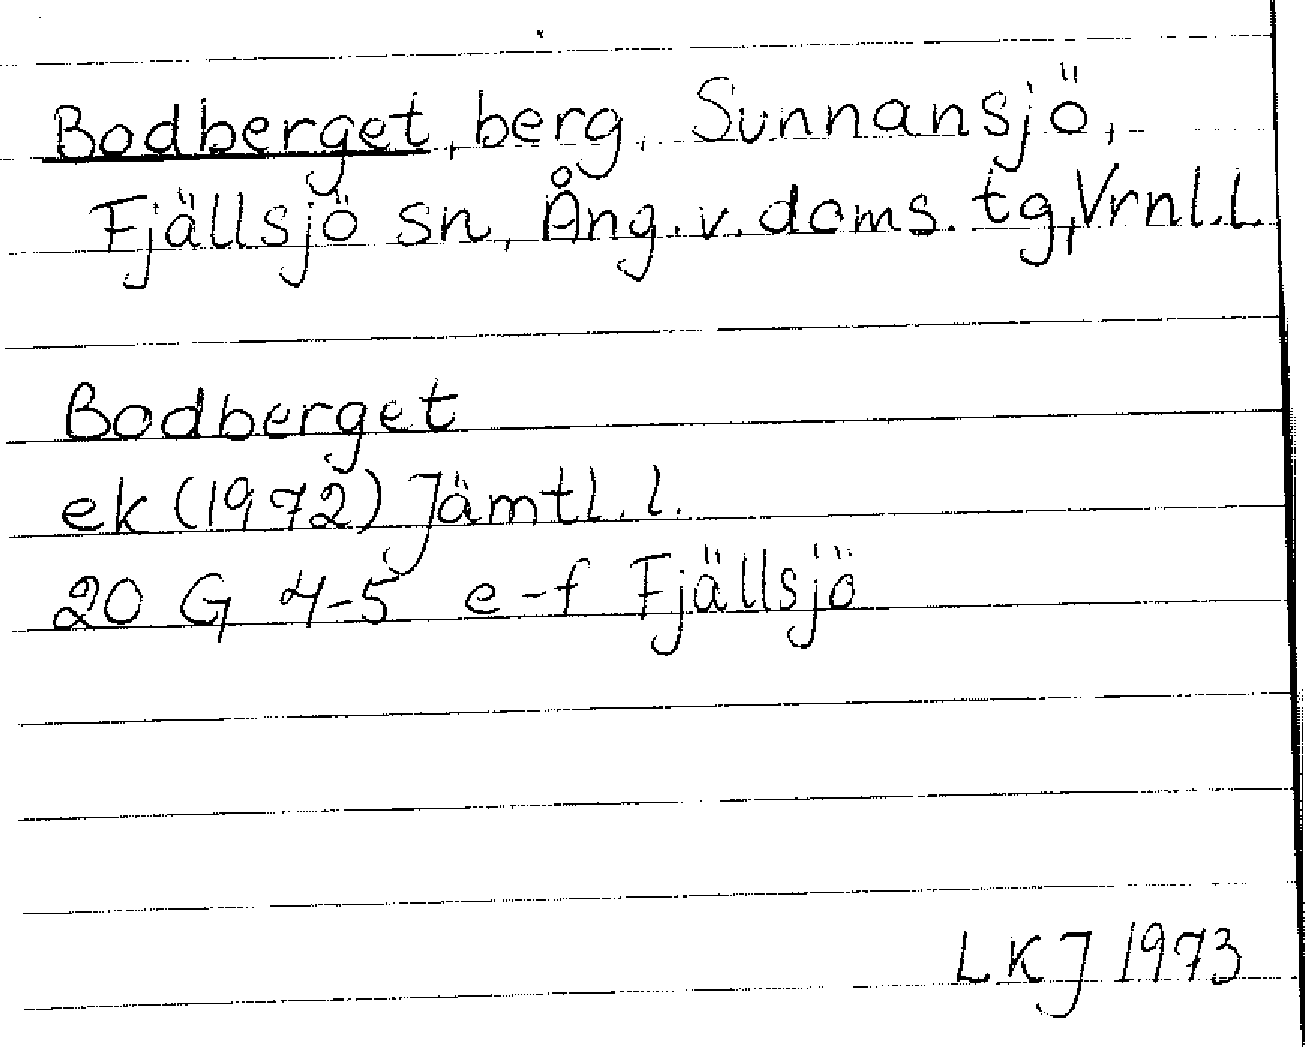 Bodberget, berg, Sunnansjö,
Fjällsjö sn, Ång. v. doms. tg, Vrnl.l.
Bodberget
ek (1972) Jämtl. l.
20 G 4-5 e-f Fjällsjö
LKJ 1973